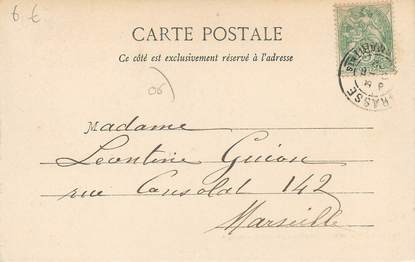 6 €
CARTE POSTALE
Ce côté est exclusivement réservé à l'adresse
06)
Madame
Leontine Guion
rue Consolat 142
Marseille